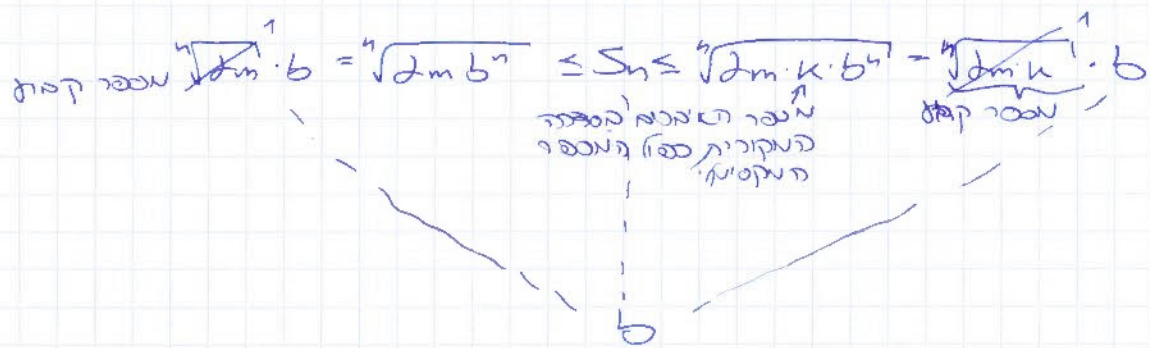 מספר קבוע ⁿ√αm · b = ⁿ√αm bⁿ ≤ Sn ≤ ⁿ√αm · k · bⁿ = ⁿ√αm · k · b
1
1
↑
מספר האיברים בסדרה
המקורית כפול המספר
המקסימלי
מספר קבוע
b